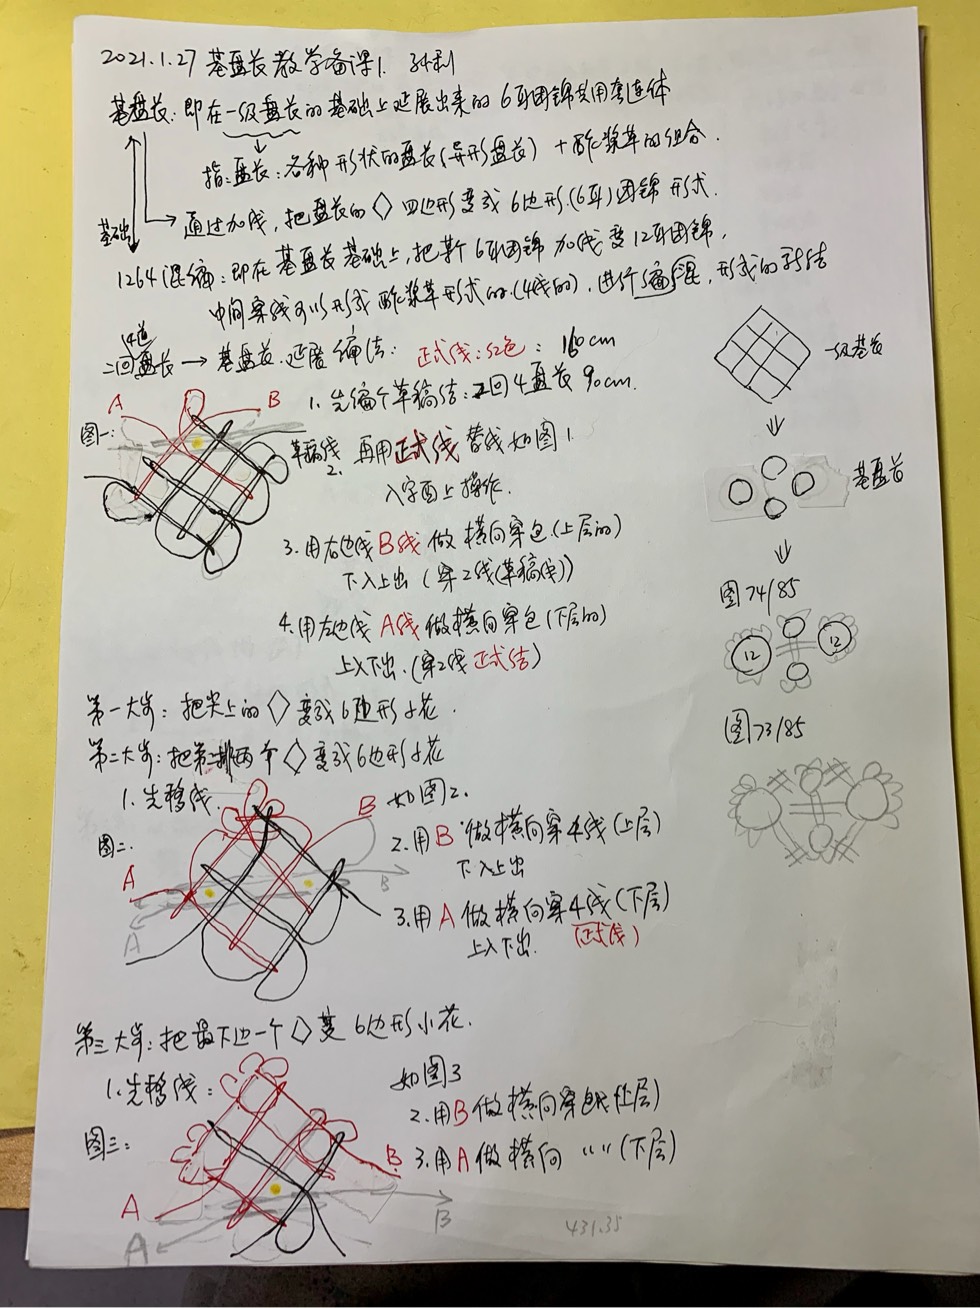 2021.1.27 基盘长教学备课1.
基盘长:即在一级盘长的基础上延展出来的6耳团锦共用套连体
指:盘长:各种形状的盘长(异形盘长)+酢浆草的组合.
基础
通过加线,把盘长的◇四边形变成6边形.(6耳)团锦形式.
1264混编:即在基盘长基础上,把某个6耳团锦加线变12耳团锦,
中间穿线可以形成酢浆草形式的(4线的),进行编混,形成的新结
4道
二回盘长→基盘长.延展编法:正式线:红色:160cm
1.先编个草稿结:二回4盘长90cm.
A
B
图一:
草稿线
2.再用正式线替线如图1
入字面上操作.
3.用右边线B线做横向穿包(上层的)
下入上出(穿2线(草稿线))
4.用左边线A线做横向穿包(下层的)
上入下出.(穿2线正式结)
一级基长
基盘长
图74/85
12
12
图73/85
第一大步:把尖上的◇变成6边形小花.
第二大步:把第二排两个◇变成6边形小花
1.先替线.
如图2.
图二.
A
B
A
B
2.用B做横向穿4线(上层)
下入上出
3.用A做横向穿4线(下层)
上入下出.(正式线)
第三大步:把最下边一个◇变6边形小花.
1.先替线:
如图3
图三:
A
B
A
B
2.用B做横向穿包线(上层)
3.用A做横向 〃〃(下层)
431.35